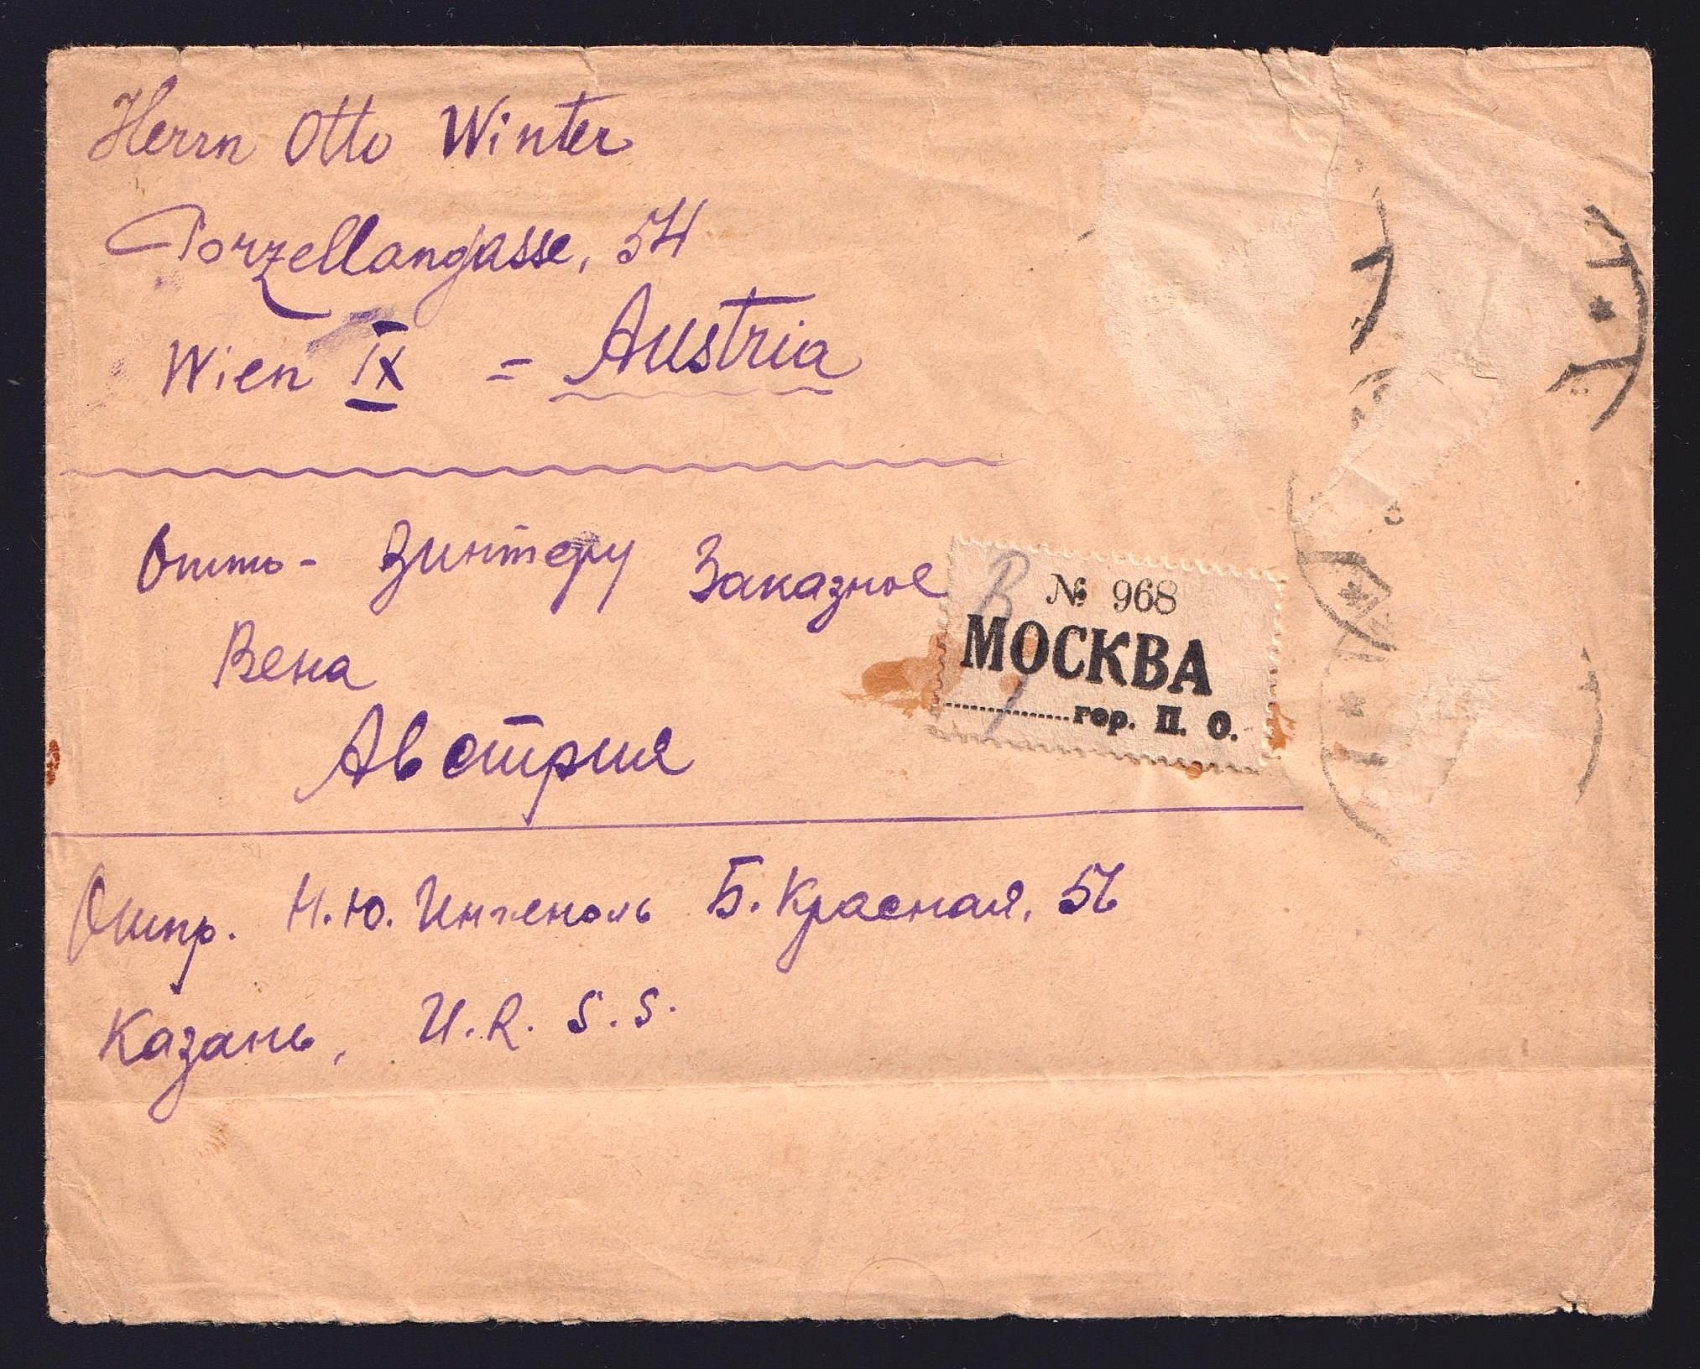 Herrn Otto Winter
Porzellangasse, 54
Wien IX = Austria
Отто - Винтеру Заказное
Вена
Австрия
№ 968
МОСКВА
гор. П. О.
Отпр. Н.Ю. Б. Красная, 56
Казань, U.R.S.S.